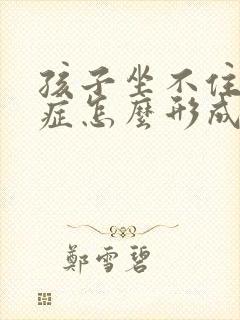 孩子坐不住
症怎麼形成
鄭雪碧